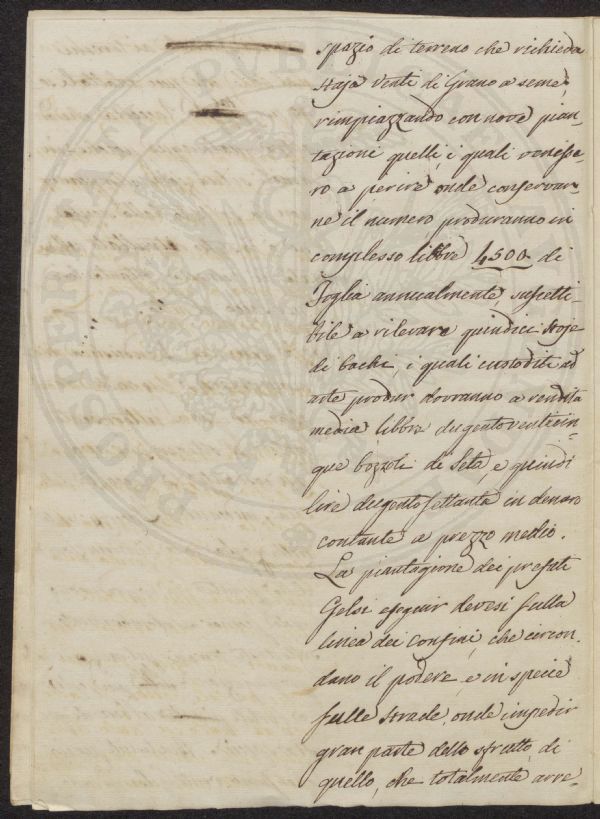 spazio di terreno che richieda
staja venti di Grano a seme,
rimpiazzando con nove pian-
tazioni quelli, i quali venisse-
ro a perire onde conservar-
ne il numero produranno in
complesso libbre 4500. di
Foglia annualmente, suscetti-
bile a rilevare quindici stoje
di bachi, i quali custoditi ad
arte produr dovranno a rendita
media libbre dugentoventicin-
que bozzoli di seta, e quindi
lire dugento settanta in denaro
contante a prezzo medio.
La piantagione dei prefati
Gelsi eseguir devesi sulla
linea dei Confini, che circon-
dano il podere, e in specie
sulle strade, onde impedir
gran parte dello sfrutto di
quello, che totalmente arre-